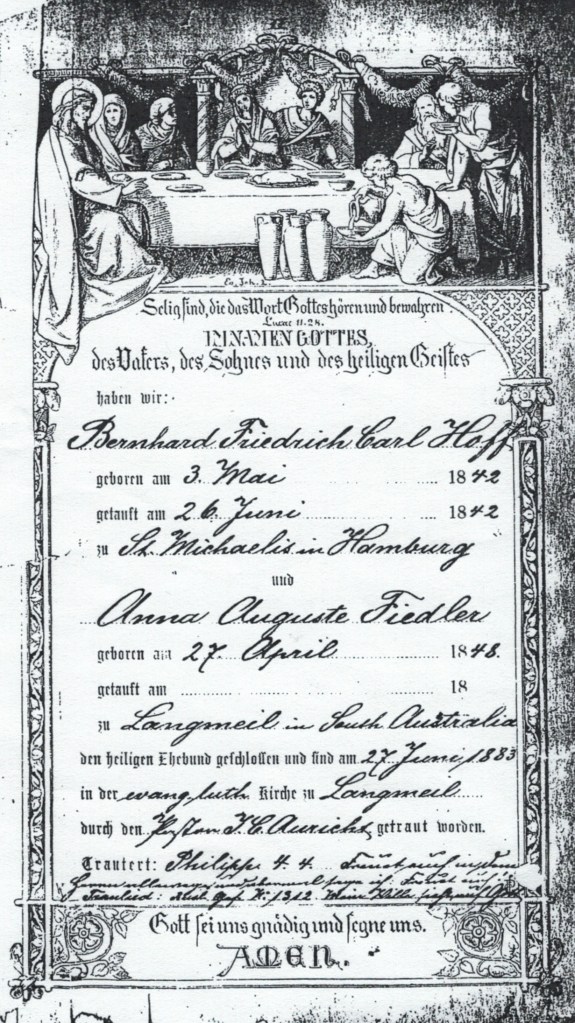 Ev. Joh. 2.
Selig sind, die das Wort Gottes hören und bewahren.
Lucae 11. 28.
IM NAMEN GOTTES,
des Vaters, des Sohnes und des heiligen Geistes
haben wir:
Bernhard Friedrich Carl Hoff
geboren am 3. Mai 1842
getauft am 26 Juni 1842
zu St. Michaelis in Hamburg
und
Anna Auguste Fiedler
geboren am 27. April 1848.
getauft am 18
zu Langmeil in South Australia
den heiligen Ehebund geschlossen und sind am 27 Juni 1883
in der evang. luth. Kirche zu Langmeil
durch den Pastor J. C. Auricht getraut worden.
Trautext: Philipp. 4. 4. Freuet euch in dem
Herrn allewege und abermal sage ich: Freuet euch
Gott sei uns gnädig und segne uns.
AMEN.